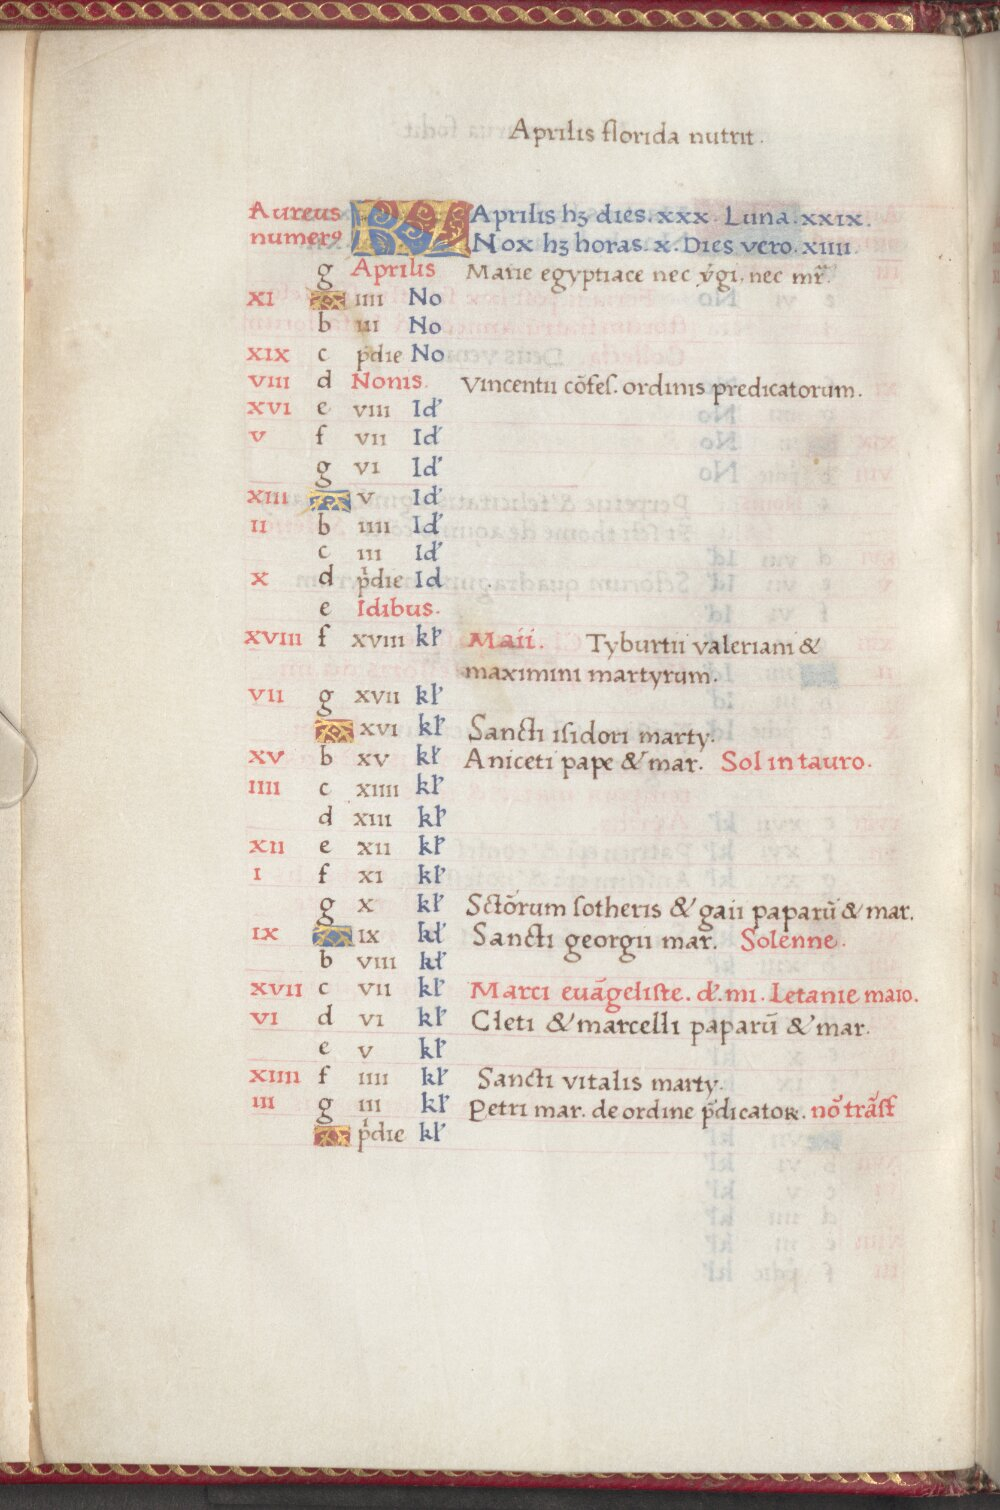 Aprilis florida nutrit.
Aureus KL Aprilis hʒ dies. xxx. Luna. xxix.
numerꝰ Nox hʒ horas. x. Dies vero. xiiii.
g Aprilis Marie egyptiace nec v̓gi. nec mr̃.
XI A iiii No
b iii No
XIX c p̓die No
VIII d Nonis. Vincentii cõfeſ. ordinis predicatorum.
XVI e viii Id'
V f vii Id'
g vi Id'
XIII A v Id'
II b iiii Id'
c iii Id'
X d p̓die Id
e Idibus.
XVIII f xviii kł Maii. Tyburtii valeriani &
maximini martyrum.
VII g xvii kł
A xvi kł Sancti iſidori marty.
XV b xv kł Aniceti pape & mar. Sol in tauro.
IIII c xiiii kł
d xiii kł
XII e xii kł
I f xi kł
g x kł Sctõrum ſotheris & gaii paparũ & mar.
IX A ix kł Sancti georgii mar. Solenne.
b viii kł
XVII c vii kł Marci euãgeliſte. d'. mi. Letanie maio.
VI d vi kł Cleti & marcelli paparũ & mar.
e v kł
XIIII f iiii kł Sancti vitalis marty.
III g iii kł Petri mar. de ordine p̃dicatoꝝ. nõ trãſf
A p̓die kł